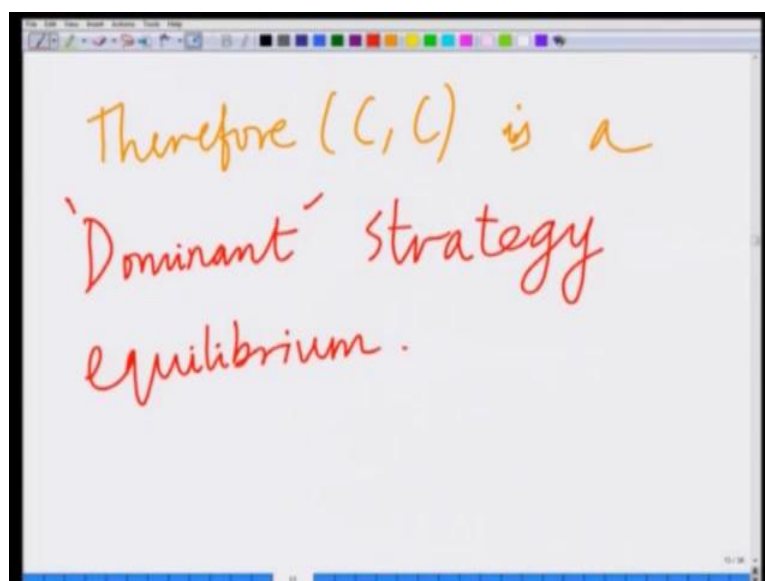 File Edit View Insert Actions Tools Help
Therefore (C, C) is a
'Dominant' strategy
equilibrium.